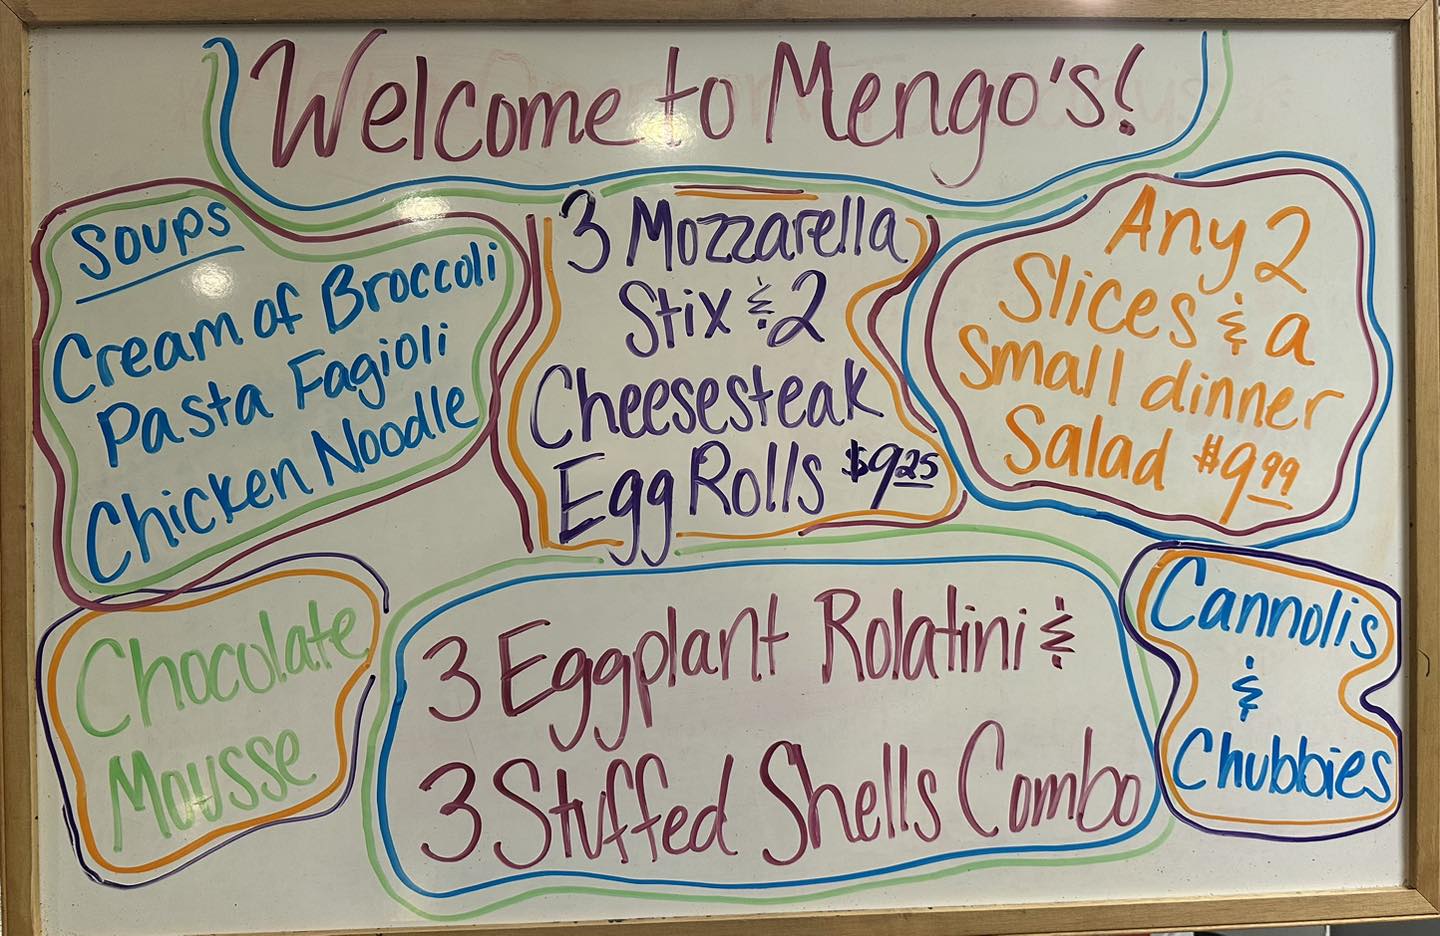 Welcome to Mengo's!
Soups
Cream of Broccoli
Pasta Fagioli
Chicken Noodle
3 Mozzarella
Stix & 2
Cheesesteak
Egg Rolls $9.25
Any 2
Slices & a
Small dinner
Salad #9.99
Chocolate
Mousse
3 Eggplant Rolatini &
3 Stuffed Shells Combo
Cannolis
&
Chubbies